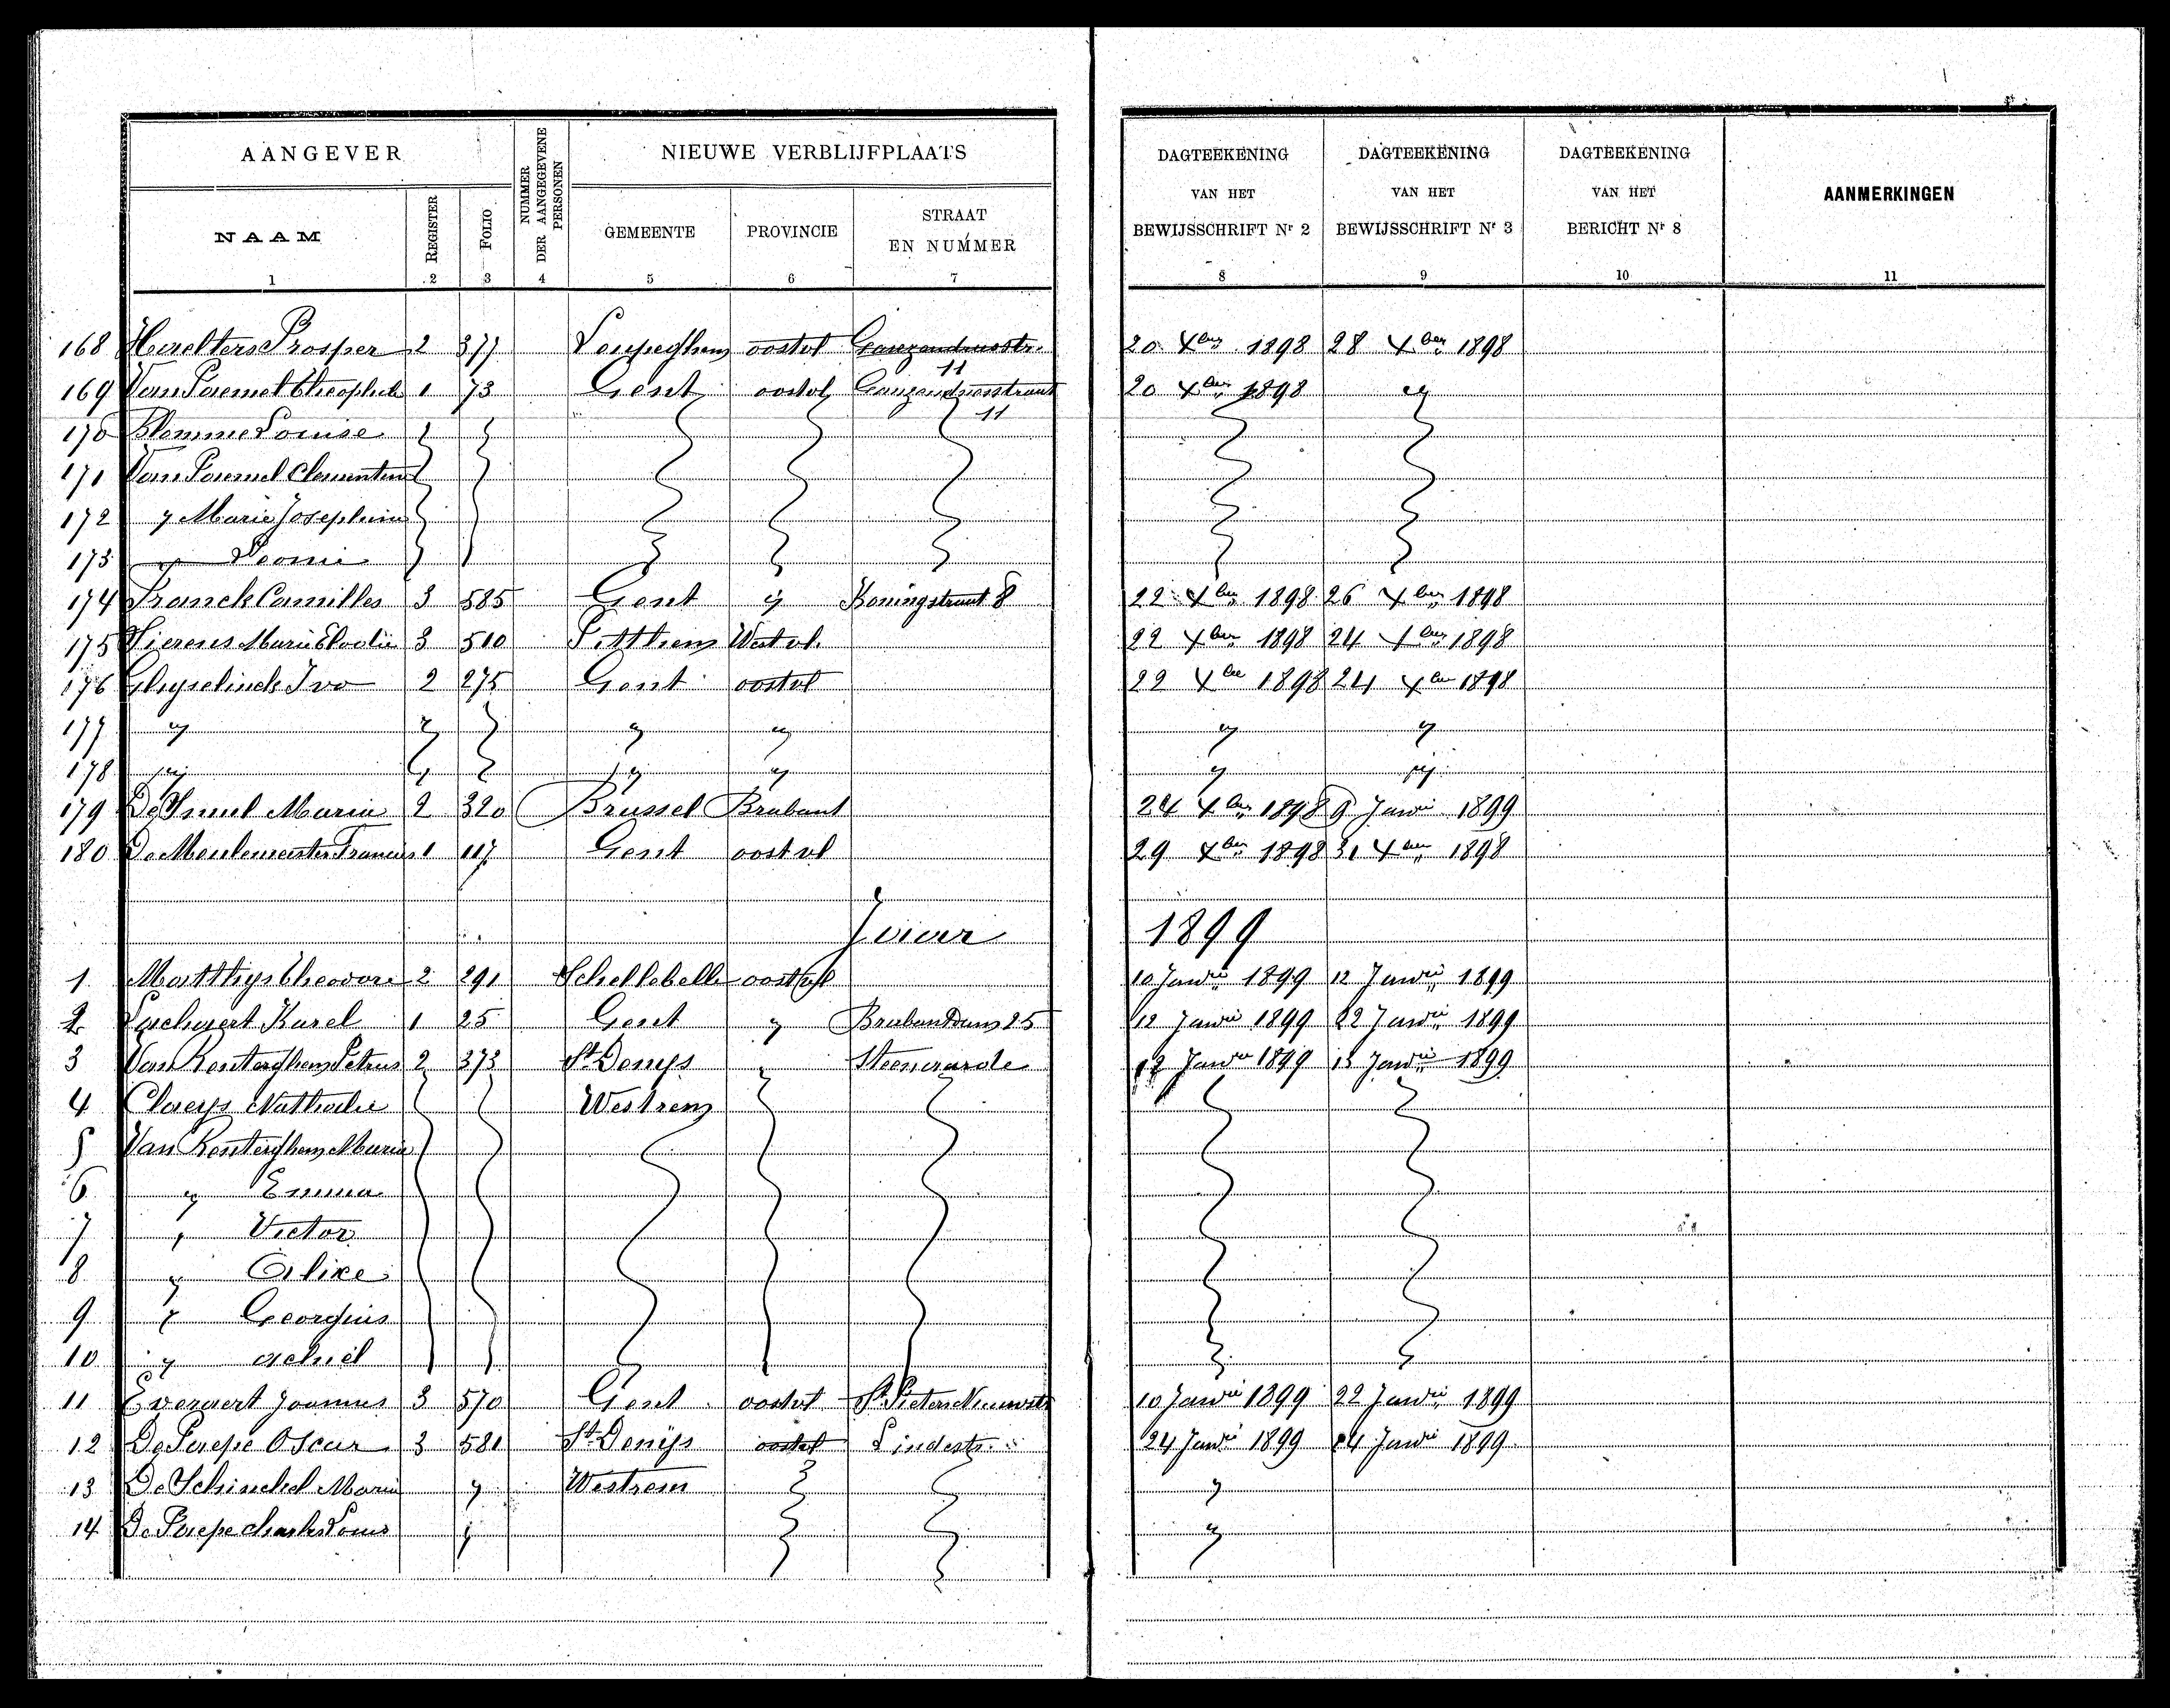 AANGEVER NUMMER DER AANGEGEVENE PERSONEN NIEUWE VERBLIJFPLAATS DAGTEEKENING VAN HET BEWIJSSCHRIFT Nr 2 DAGTEEKENING VAN HET BEWIJSSCHRIFT Nr 3 DAGTEEKENING VAN HET BERICHT Nr 8 AANMERKINGEN
NAAM REGISTER FOLIO GEMEENTE PROVINCIE STRAAT EN NUMMER
1 2 3 4 5 6 7 8 9 10 11
168 Prosper 2 377 oostvl 20 Xber 1898 28 Xber 1898
11
169 Van Paemel Theophiel 1 73 Gent oostvl 20 Xber 1898 "
11
170 Blomme Louise
171 Van Paemel Clementina
172 " Marie Josephina
173 "
174 Franck Camilles 3 585 Gent " Koningstraat 8 22 Xber 1898 26 Xber 1898
175 Vierens Marie Elodie 3 510 Pitthem Westvl. 22 Xber 1898 24 Xber 1898
176 Ghyselinck Ivo 2 275 Gent oostvl 22 Xber 1898 24 Xber 1898
177 " " " " " "
178 " " " " "
179 De Smul Maria 2 320 Brussel Brabant 24 Xber 1898 9 Janri 1899
180 De Meulemeester Francies 1 117 Gent oostvl 29 Xber 1898 31 Xber 1898
Jaar 1899
1 Matthys Theodore 2 291 Schellebelle oostvl 10 Janri 1899 12 Janri 1899
2 Karel 1 25 Gent " Brabantdam 25 12 Janri 1899 22 Janri 1899
3 Van Renterghem Petrus 2 373 St Denijs " Steenaarde 12 Janri 1899 13 Janri 1899
4 Claeys Nathalie Westrem
5 Van Renterghem Maria
6 " Emma
7 " Victor
8 " Alixe
9 " Georgius
10 " Achiel
11 Evervaert Joannes 3 570 Gent oostvl 10 Janri 1899 22 Janri 1899
12 De Paepe Oscar 3 581 St Denijs oostvl Lindestr. 24 Janri 1899 24 Janri 1899
13 De Schinckel Maria " Westrem "
14 De Paepe Charles Louis " "